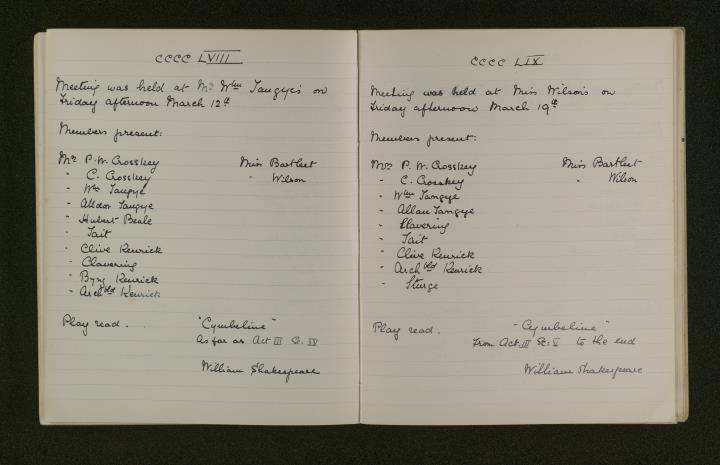 CCCC LVIII
Meeting was held at Mrs Wm Tangye's on
Friday afternoon March 12th
Members present:
Mrs P. W. Crosskey Miss Bartleet
" C. Crosskey " Wilson
" Wm Tangye
" Tangye
" Hubert Beale
" Tait
" Clive Kenrick
" Clavering
" Byng Kenrick
" Archbld Kenrick
Play read. . . "Cymbeline"
As far as Act III Sc. IV
William Shakespeare
CCCC LIX
Meeting was held at Miss Wilson's on
Friday afternoon March 19th
Members present:
Mrs P. W. Crosskey Miss Bartleet
" C. Crosskey " Wilson
" Wm Tangye
" Allan Tangye
" Clavering
" Tait
" Clive Kenrick
" Archbld Kenrick
" Sturge
Play read. "Cymbeline"
From Act. III Sc: V to the end
William Shakespeare